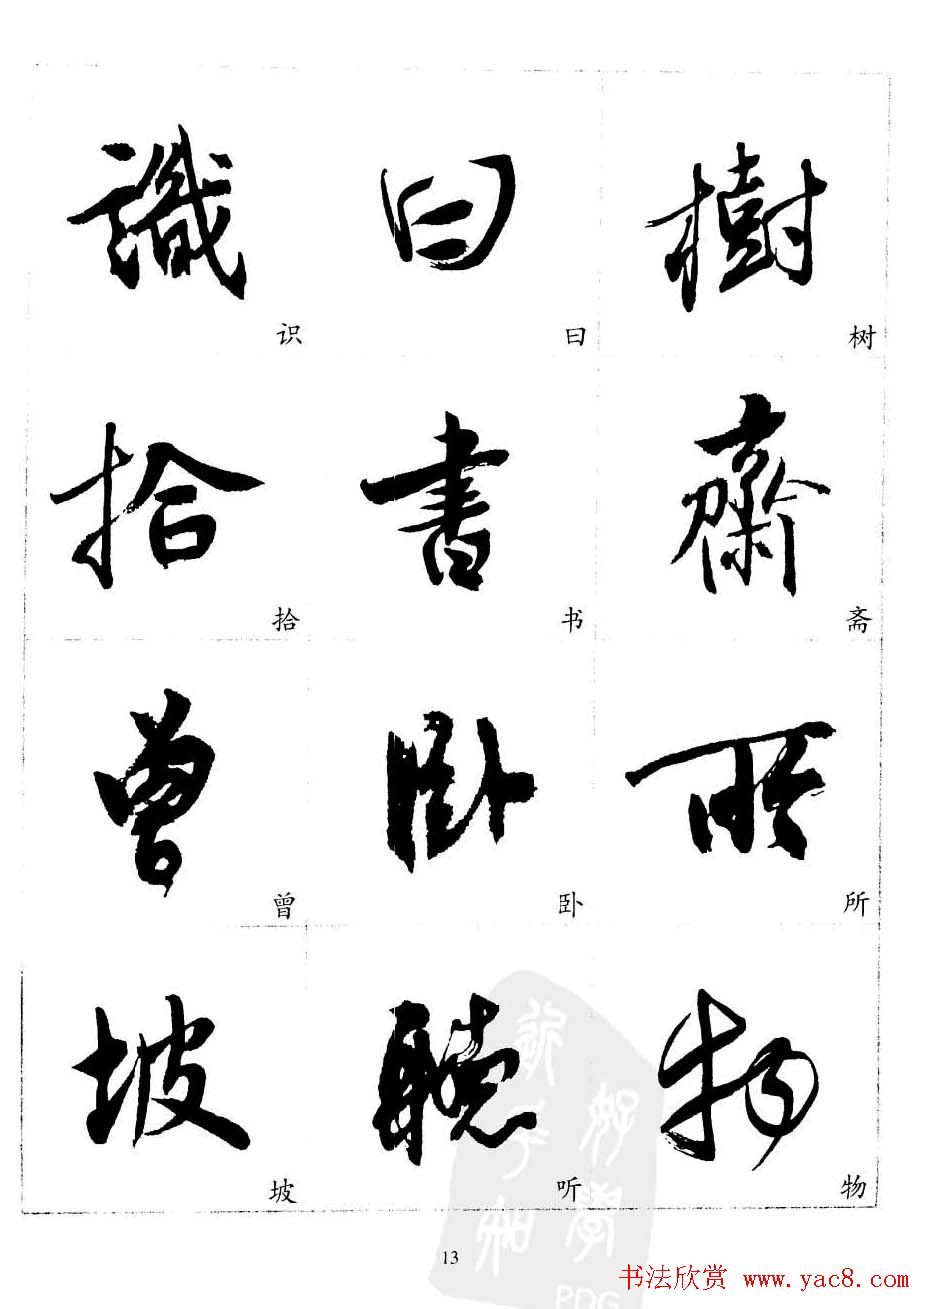 識 曰 樹
识 曰 树
拾 書 齋
拾 书 斋
曾 卧 所
曾 卧 所
坡 聽 物
坡 听 物
13
书法欣赏 www.yac8.com
PDG